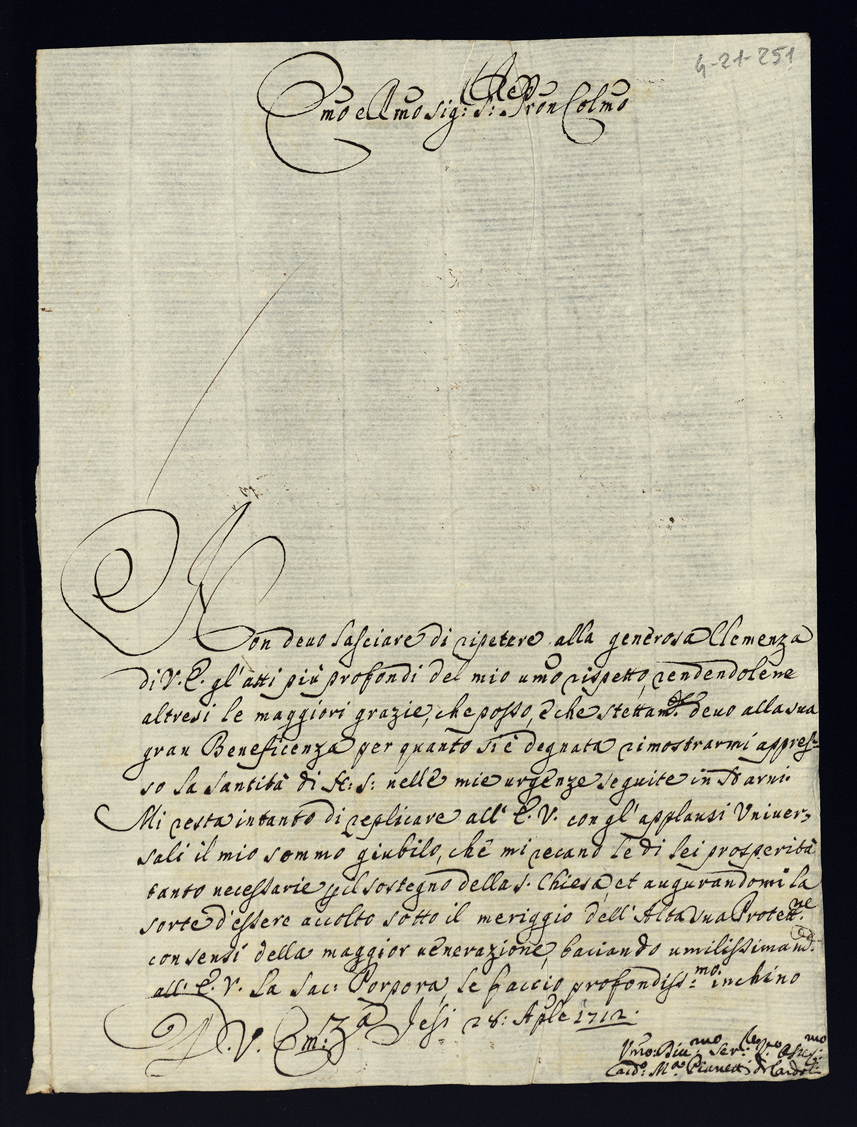 4-21-251
Emo e Rmo Sig: S: Pron Colmo
Non deuo lasciare di ripetere alla generosa Clemenza
di V. E. gl'atti più profondi del mio umo rispetto, rendendolene
altresi le maggiori grazie, che posso, e che deuo alla sua
gran Beneficenza per quanto si è degnata rimostrarmi appres-
so la Santità di N: S: nelle mie urgenze seguite in
Mi resta intanto di replicare all' E. V. con gl' applausi Vniuer-
sali il mio sommo giubilo, che mi recano le di lei prosperità
tanto necessarie p il sostegno della S. Chiesa, et augurandomi la
sorte d'essere accolto sotto il meriggio dell' Alta sua Protett.ne
con sensi della maggior uenerazione, baciando umilissimam.
all' E. V. la Sac: Porpora, le faccio profondiss:mo inchino
D. V. Em:za Jesi 28: Aple 1712.
Vmo: Diu:mo Ser:
Pianett